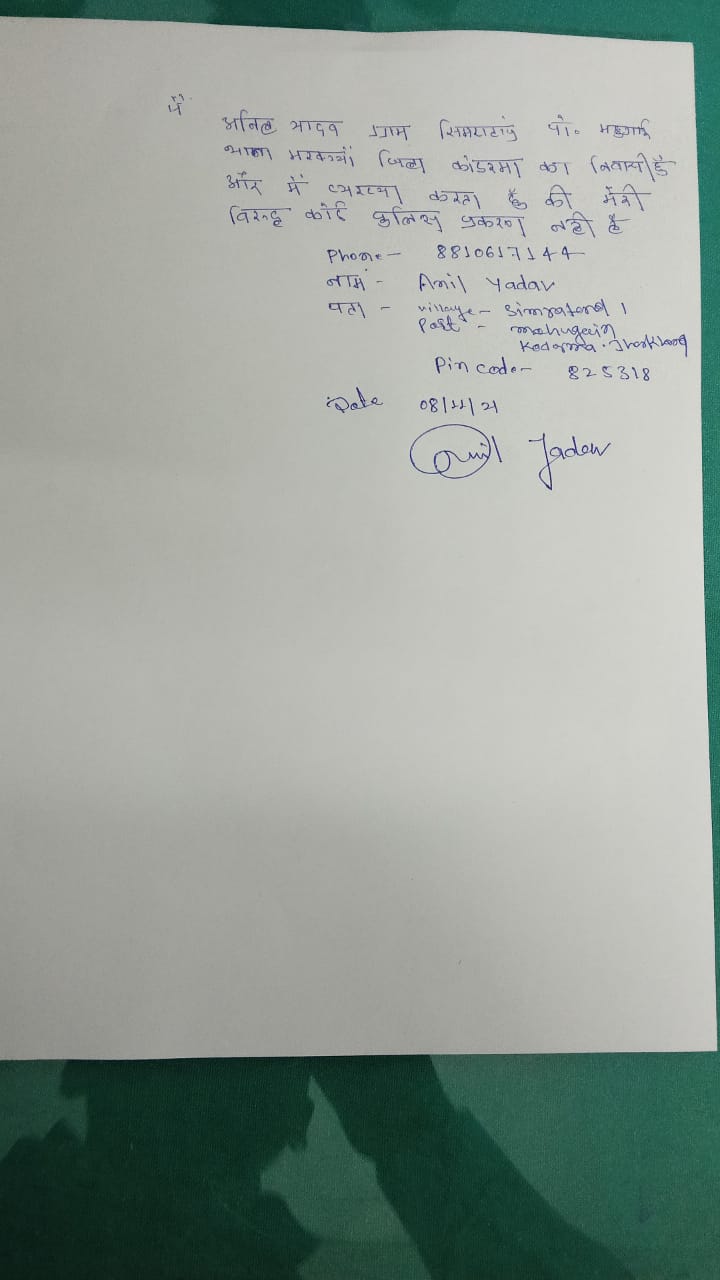 मैं
अनिल यादव ग्राम सिमराटांड़ पो. महुगाई
थाना मरकच्चों जिला कोडरमा का निवासी हूँ
और में करता हूँ की मेरी
विरुद्ध कोई पुलिस प्रकरण नही है
Phone - 8810617144
नाम - Anil Yadav
पता - village - Simratand 1
Post - mahugain
Kodarma. Jharkhand
Pin code - 825318
Date 08/11/21
Anil Yadav